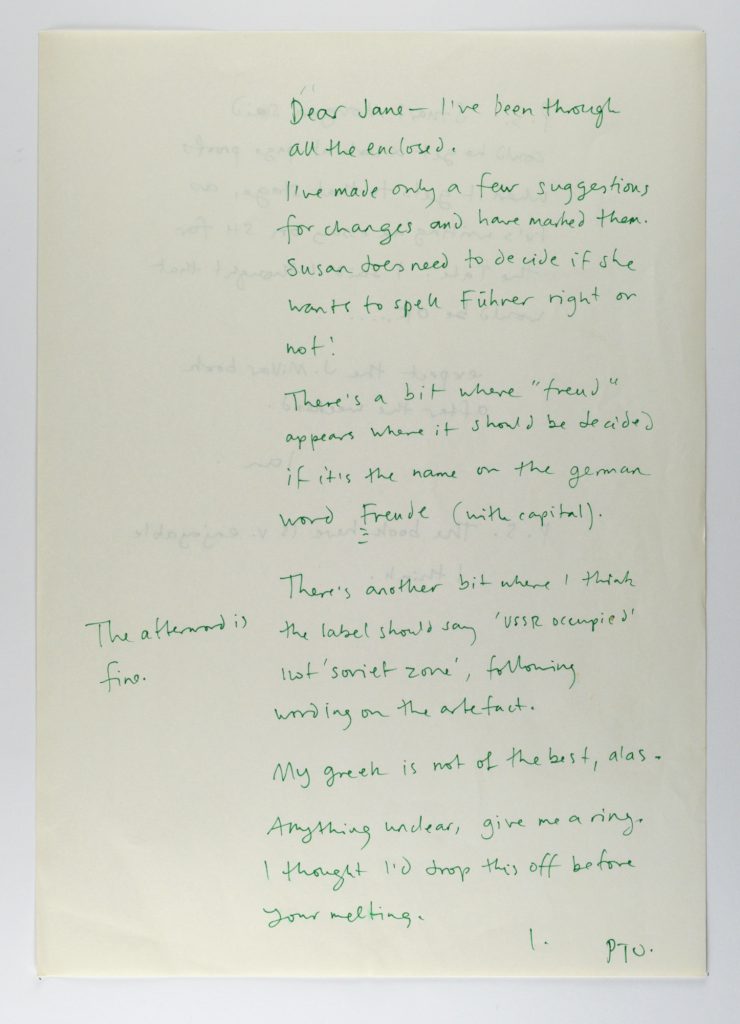 Dear Jane — I've been through
all the enclosed.
I've made only a few suggestions
for changes and have marked them.
Susan does need to decide if she
wants to spell Führer right or
not!
There's a bit where "freud"
appears where it should be decided
if it's the name or the german
word Freude (with capital).
There's another bit where I think
the label should say 'USSR occupied'
not 'soviet zone', following
wording on the artefact.
The afterword is
fine.
My greek is not of the best, alas.
Anything unclear, give me a ring.
I thought I'd drop this off before
your melting.
I.
PTO.